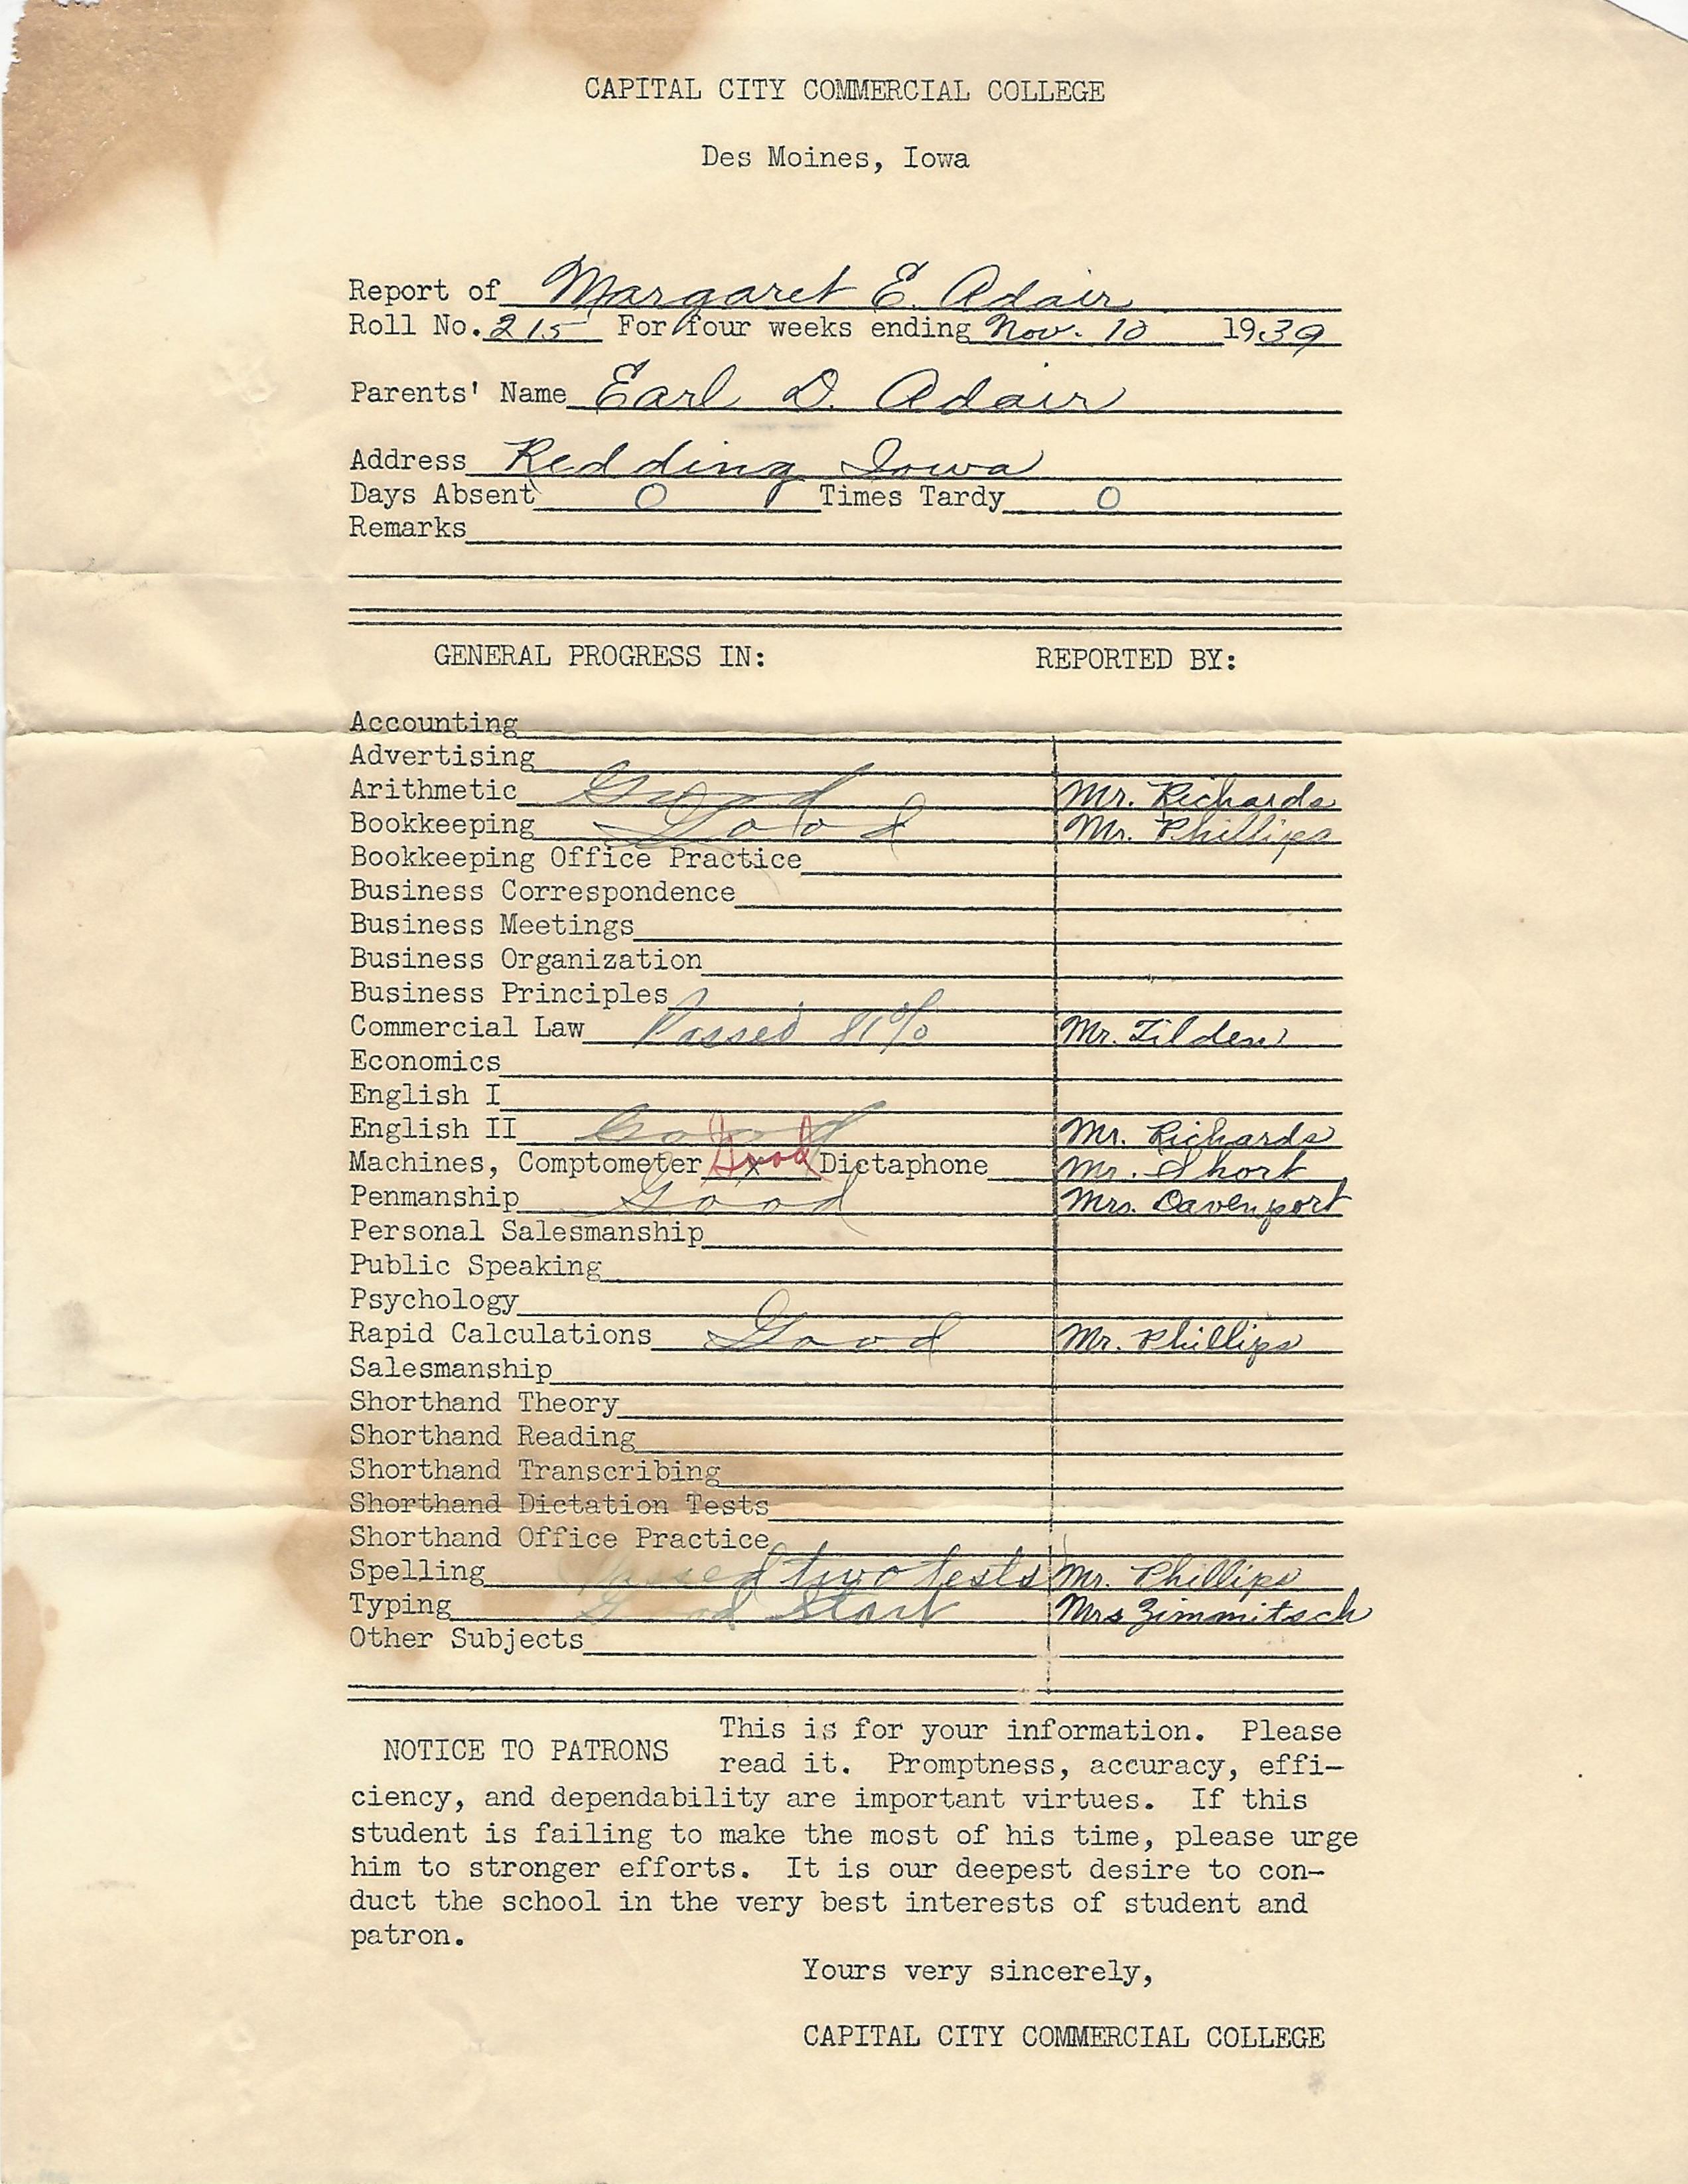 CAPITAL CITY COMMERCIAL COLLEGE
Des Moines, Iowa
Report of Margaret E. Adair
Roll No. 215 For four weeks ending Nov. 10 1939
Parents' Name Earl D. Adair
Address Redding Iowa
Days Absent 0 Times Tardy 0
Remarks
GENERAL PROGRESS IN: REPORTED BY:
Accounting
Advertising
Arithmetic Good Mr. Richards
Bookkeeping Good Mr. Phillips
Bookkeeping Office Practice
Business Correspondence
Business Meetings
Business Organization
Business Principles
Commercial Law Passed 81% Mr. Tilden
Economics
English I
English II Good Mr. Richards
Machines, Comptometer x Good Dictaphone Mr. Short
Penmanship Good Mrs. Davenport
Personal Salesmanship
Public Speaking
Psychology
Rapid Calculations Good Mr. Phillips
Salesmanship
Shorthand Theory
Shorthand Reading
Shorthand Transcribing
Shorthand Dictation Tests
Shorthand Office Practice
Spelling Passed two tests Mr. Phillips
Typing Good Start Mrs Zimmitsch
Other Subjects
This is for your information. Please
NOTICE TO PATRONS read it. Promptness, accuracy, effi-
ciency, and dependability are important virtues. If this
student is failing to make the most of his time, please urge
him to stronger efforts. It is our deepest desire to con-
duct the school in the very best interests of student and
patron.
Yours very sincerely,
CAPITAL CITY COMMERCIAL COLLEGE